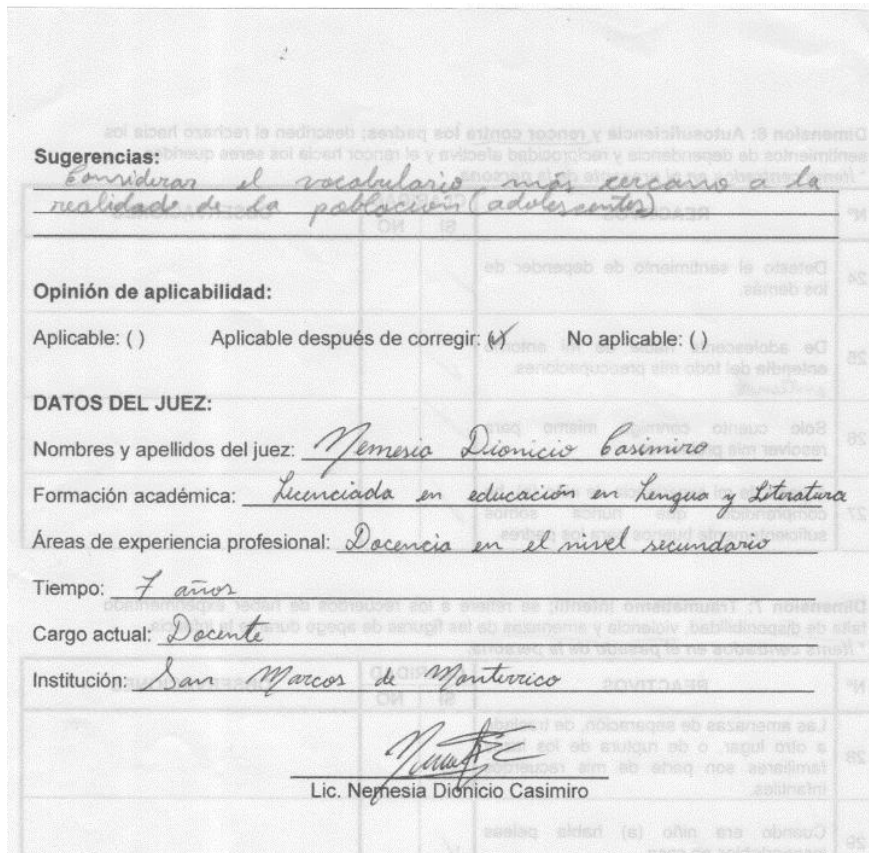 Sugerencias:
Considerar el vocabulario más cercano a la
realidad de la población (adolescentes)
Opinión de aplicabilidad:
Aplicable: ( ) Aplicable después de corregir: (x) No aplicable: ( )
DATOS DEL JUEZ:
Nombres y apellidos del juez: Nemesia Dionicio Casimiro
Formación académica: Licenciada en educación en Lengua y Literatura
Áreas de experiencia profesional: Docencia en el nivel secundario
Tiempo: 7 años
Cargo actual: Docente
Institución: San Marcos de Monterrico
Lic. Nemesia Dionicio Casimiro